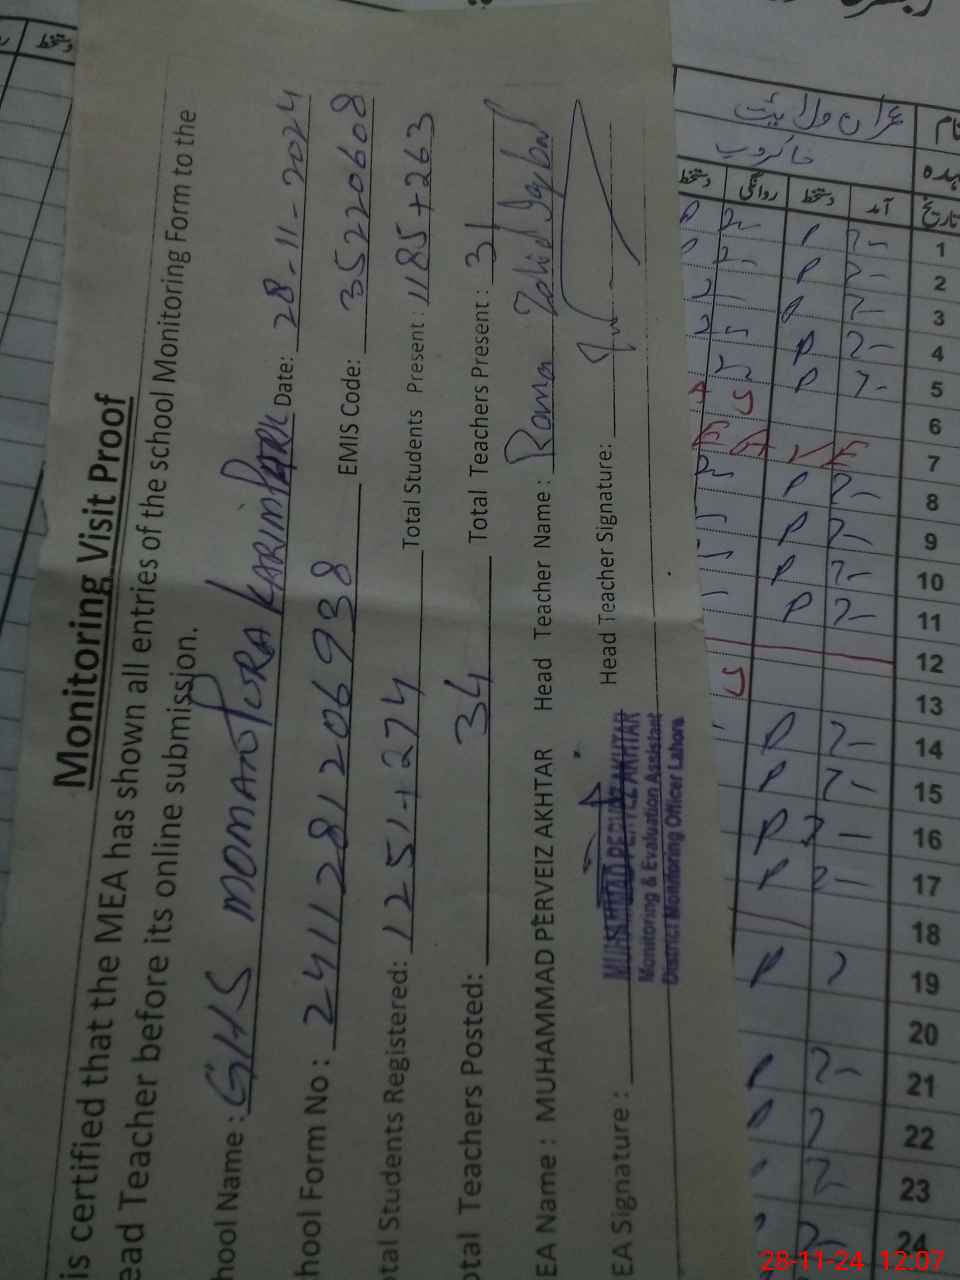 Monitoring Visit Proof
is certified that the MEA has shown all entries of the school Monitoring Form to the
ead Teacher before its online submission.
hool Name : GHS MOMANPURA KARIM PARK Date: 28-11-2024
hool Form No : 2411281206938 EMIS Code: 35220608
tal Students Registered: 1251+274 Total Students Present : 1185+263
otal Teachers Posted: 34 Total Teachers Present : 31
EA Name : MUHAMMAD PERVEIZ AKHTAR Head Teacher Name : Rana Zahid
EA Signature : Head Teacher Signature:
MUHAMMAD PERVEZ AKHTAR
Monitoring & Evaluation Assistant
District Monitoring Officer Lahore
نام
عہدہ
تاریخ
آمد دستخط روانگی دستخط
1
2
3
4
5
6
7
8
9
10
11
12
13
14
15
16
17
18
19
20
21
22
23
24
28-11-24 12:07